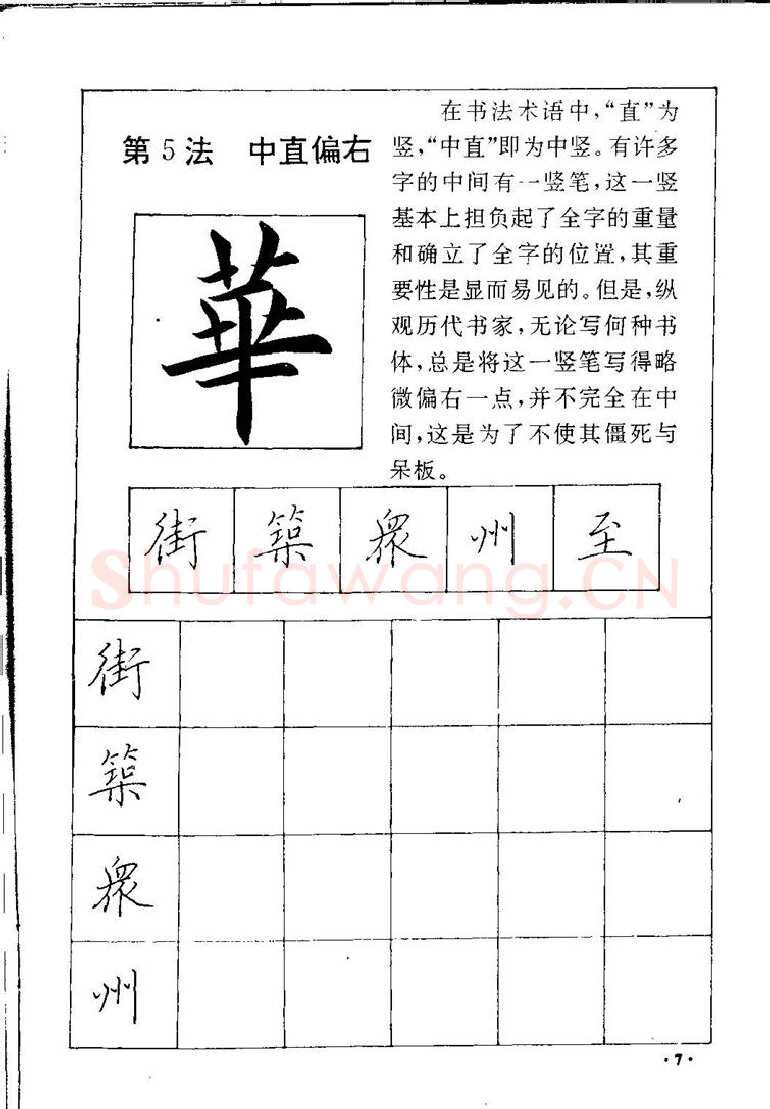 第5法 中直偏右
在书法术语中,“直”为
竖,“中直”即为中竖。有许多
字的中间有一竖笔,这一竖
基本上担负起了全字的重量
和确立了全字的位置,其重
要性是显而易见的。但是,纵
观历代书家,无论写何种书
体,总是将这一竖笔写得略
微偏右一点,并不完全在中
间,这是为了不使其僵死与
呆板。
華
街 築 眾 州 至
shufawang.CN
街
築
眾
州
·7·